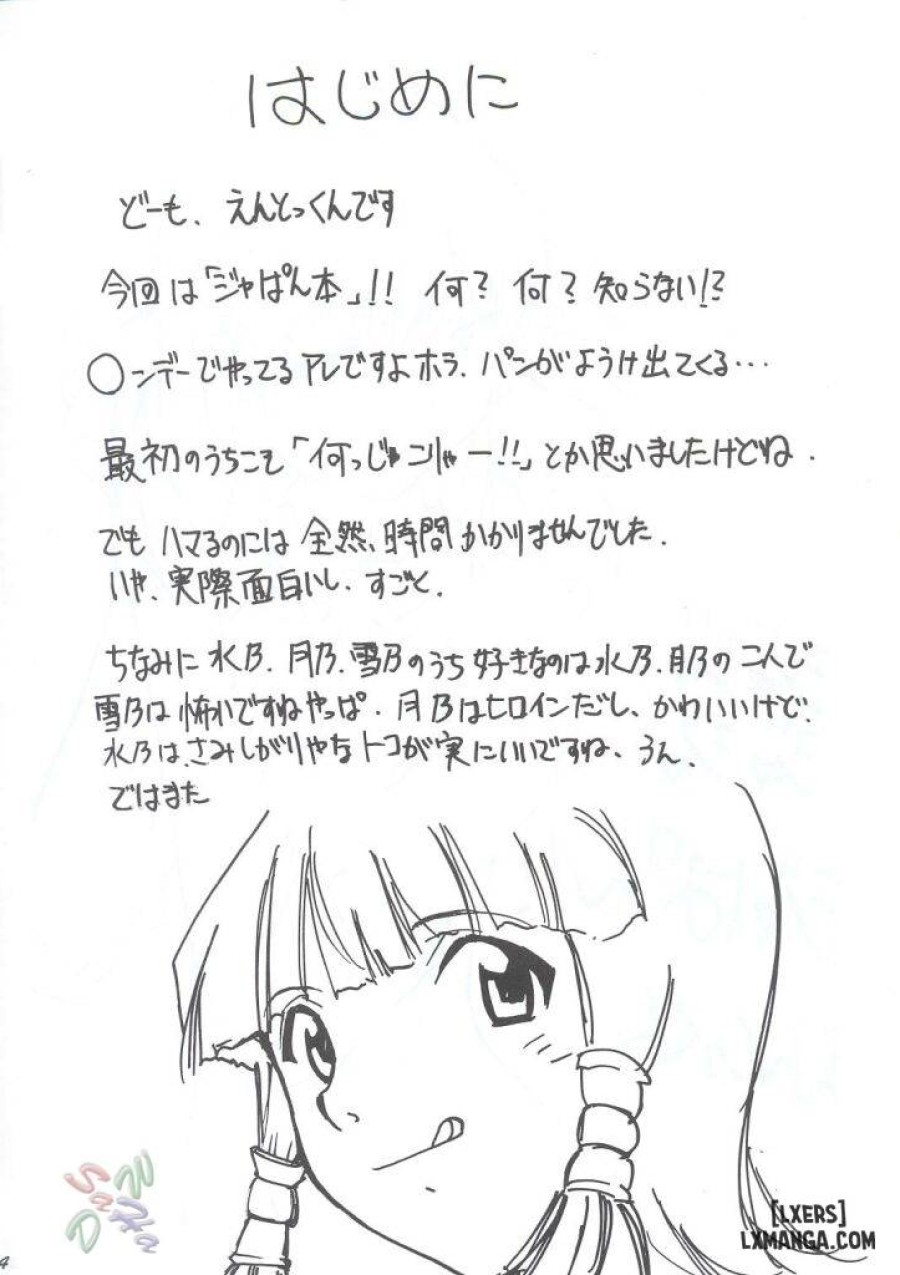 はじめに
どーも、えんとっくんです
今回は「ジャぱん本」!! 何? 何? 知らない!?
○ンデーでやってるアレですよホラ、パンがようけ出てくる…
最初のうちこそ「何っじゃこりゃー!!」とか思いましたけどね.
でもハマるのには全然、時間かかりませんでした.
いや、実際面白いし、すごく.
ちなみに水乃、月乃、雪乃のうち好きなのは水乃、月乃の二人で
雪乃は怖いですねやっぱ. 月乃はヒロインだし、かわいいけど、
水乃は、さみしがりやなトコが実にいいですね、うん.
ではまた
SaHa
[LXERS]
LXMANGA.COM
4